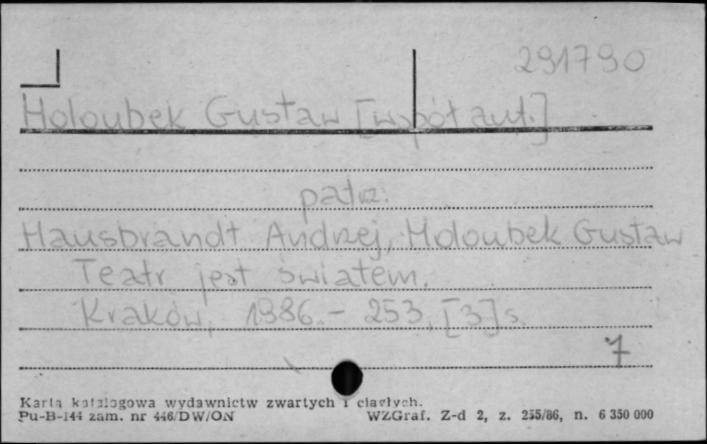 291790
Holoubek Gustaw [współaut.]
patrz:
Hausbrandt Andrzej, Holoubek Gustaw
Teatr jest światem.
Kraków, 1986.- 253, [3] s.
7
Karta katalogowa wydawnictw zwartych i ciągłych.
Pu-B-144 zam. nr 446/DW/ON WZGraf. Z-d 2, z. 255/86, n. 6 350 000